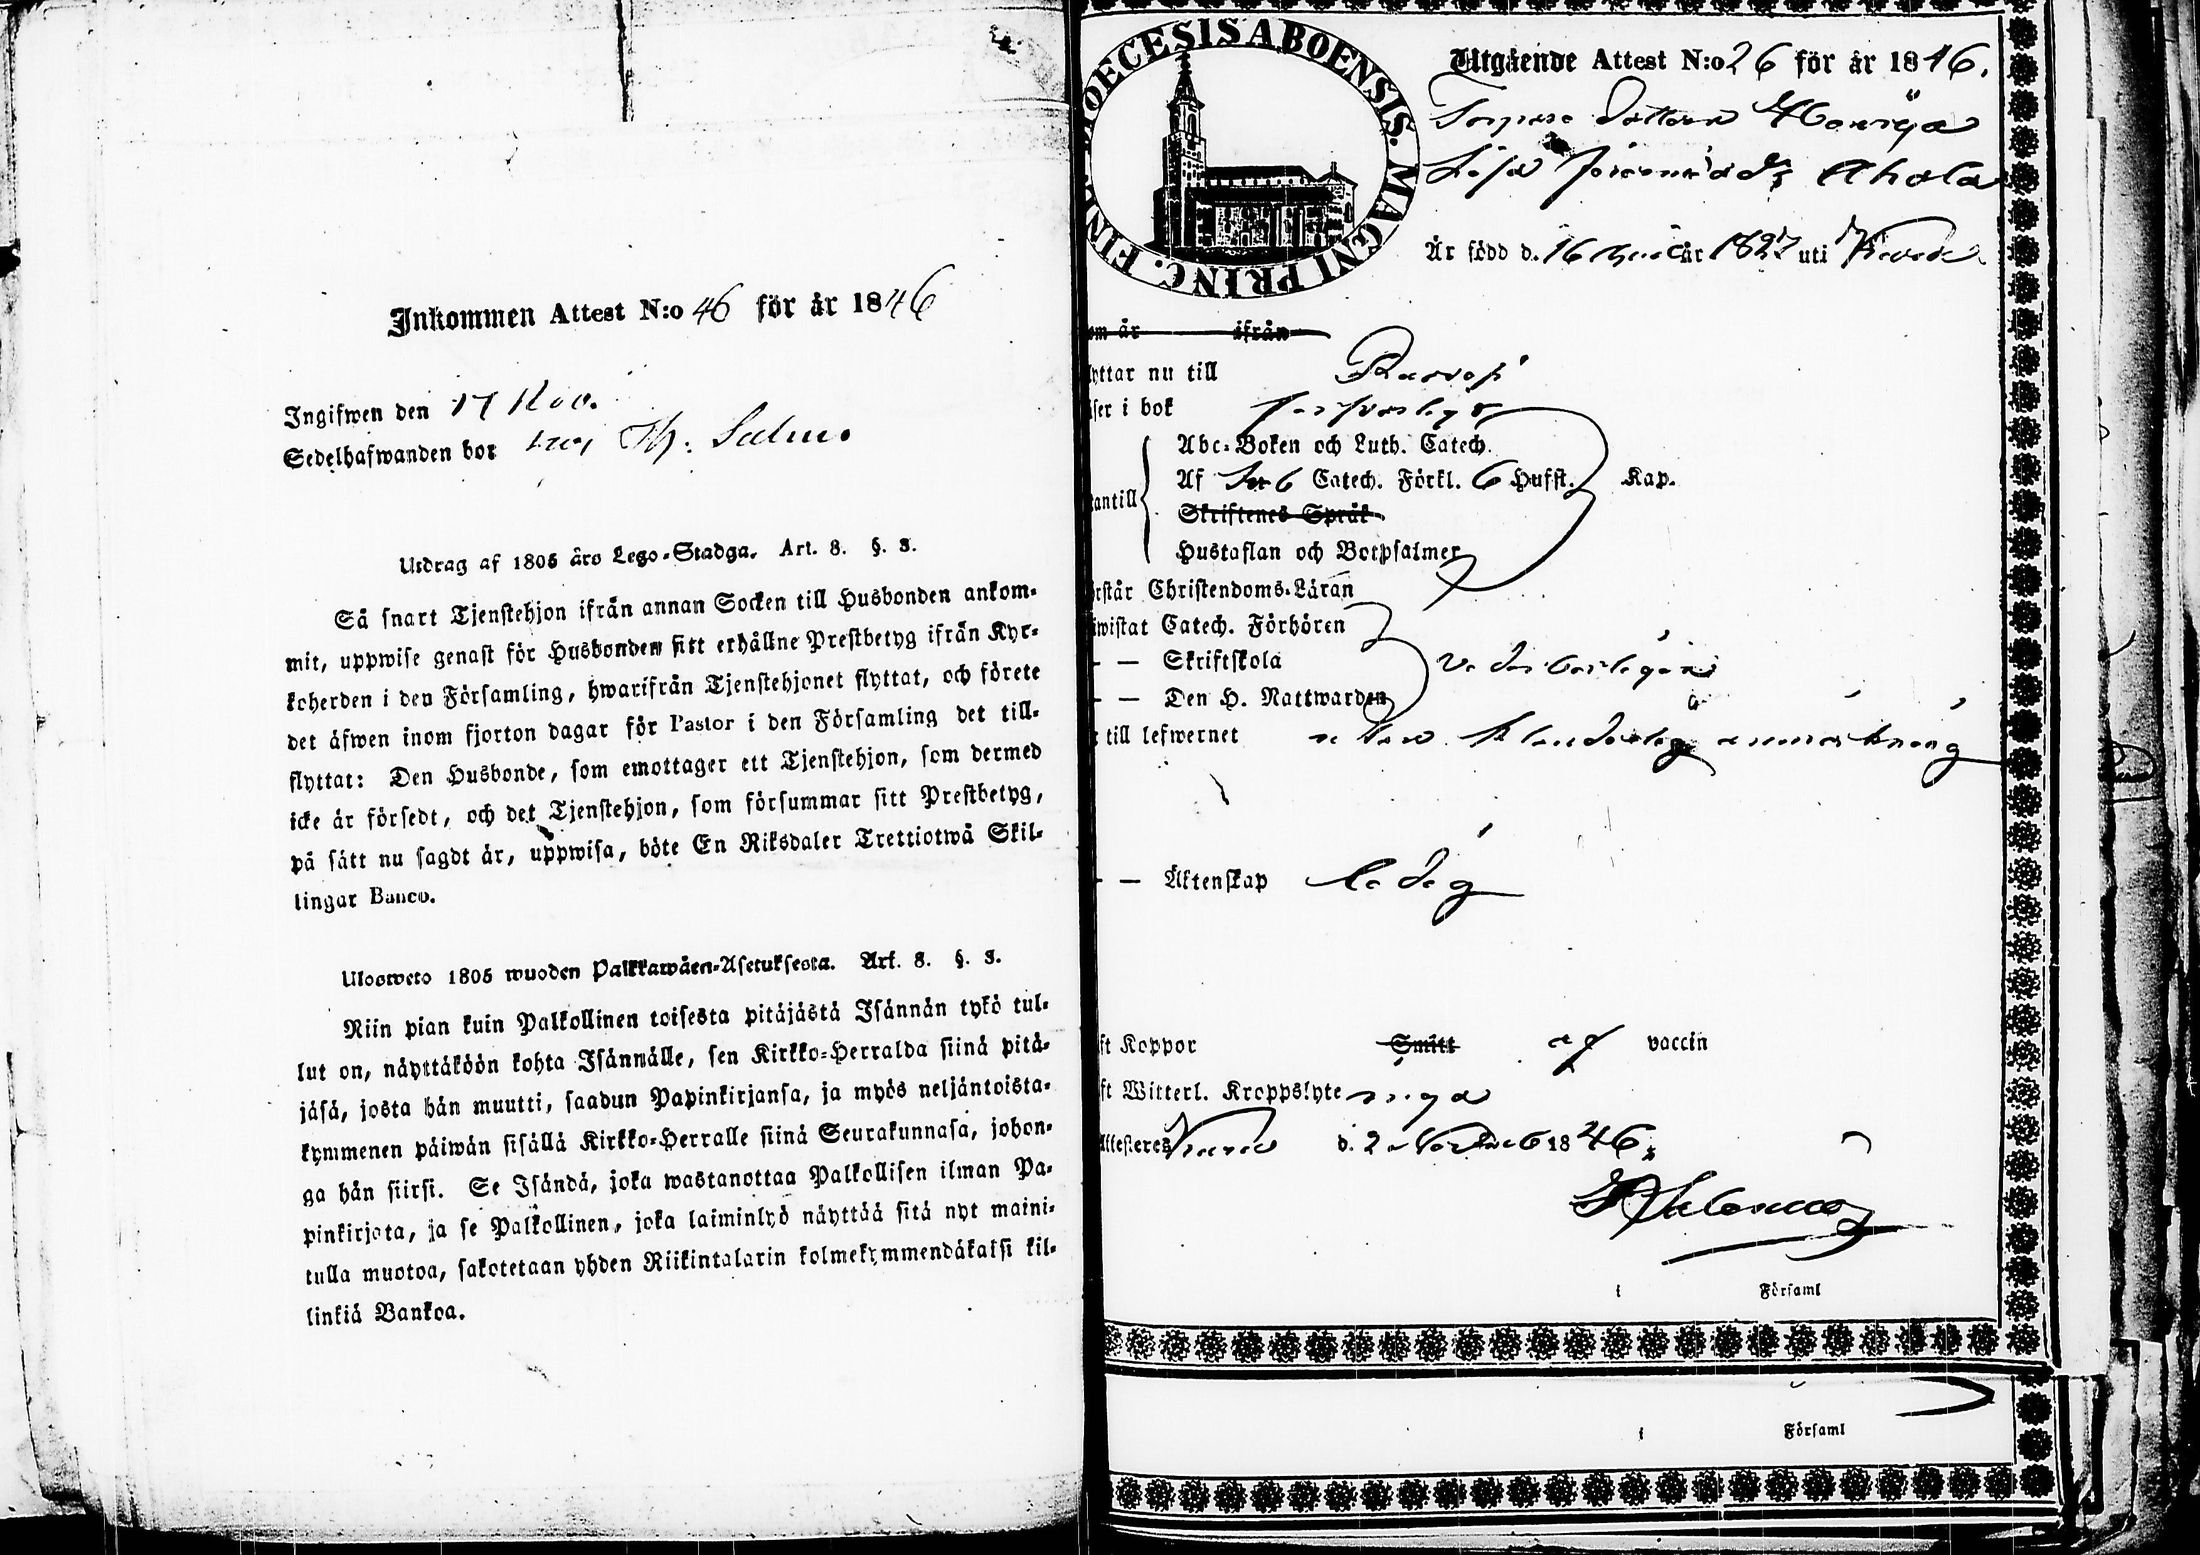 Inkommen Attest N:o 46 för år 1846
Ingifwen den 17 Nov.
Sedelhafwanden bor hos Th. Salmo
Utdrag af 1805 års Lego-Stadga. Art. 8. §. 3.
Så snart Tjenstehjon ifrån annan Socken till Husbonden ankom-
mit, uppwise genast för Husbonden sitt erhållne Prestbetyg ifrån Kyr-
koherden i den Församling, hwarifrån Tjenstehjonet flyttat, och förete
det äfwen inom fjorton dagar för Pastor i den Församling det till-
flyttat: Den Husbonde, som emottager ett Tjenstehjon, som dermed
icke är försedt, och det Tjenstehjon, som försummar sitt Prestbetyg,
på sätt nu sagdt är, uppwisa, böte En Riksdaler Trettiotwå Skil-
lingar Banco.
Uloswето 1805 wuoden Palkkawäen-Asetuksesta. Art. 8. §. 3.
Niin pian kuin Palkollinen toisesta pitäjästä Isännän tykö tul-
lut on, näyttäköön kohta Isännälle, sen Kirkko-Herralda siinä pitä-
jäsä, josta hän muutti, saadun Papinkirjansa, ja myös neljäntoista-
kymmenen päiwän sisällä Kirkko-Herralle siinä Seurakunnasa, johon-
ga hän siirsi. Se Isändä, joka wastanottaa Palkollisen ilman Pa-
pinkirjata, ja se Palkollinen, joka laiminlyö näyttää sitä nyt maini-
tulla muotoa, sakotetaan yhden Riikintalarin kolmekymmendäkaksi kil-
linkiä Bankoa.
DIOECESIS ABOENSIS. MAGNI PRINC. FINL
Utgående Attest N:o 26 för år 1846.
Torpare Dottern
Lisa Ahola
Är född d. 16 år 1827 uti
om år ifrån
lyttar nu till
äser i bok försvarligt
Abc-Boken och Luth. Catech.
Af Catech. Förkl. 6 Hufst. Kap.
tantill
Skriftenes Språk
Hustaflan och Botpsalmer
örstår Christendoms-Läran
iwistat Catech. Förhören
- — Skriftskola vederbörligen
- — Den H. Nattwarden
r till lefwernet utan klanderlig anmärkning
- — Äktenskap ledig
ft Koppor Smitt af vaccin
ft Witterl. Kroppslyte inga
Attesteres d. 2 November 1846.
i Församl
i Församl